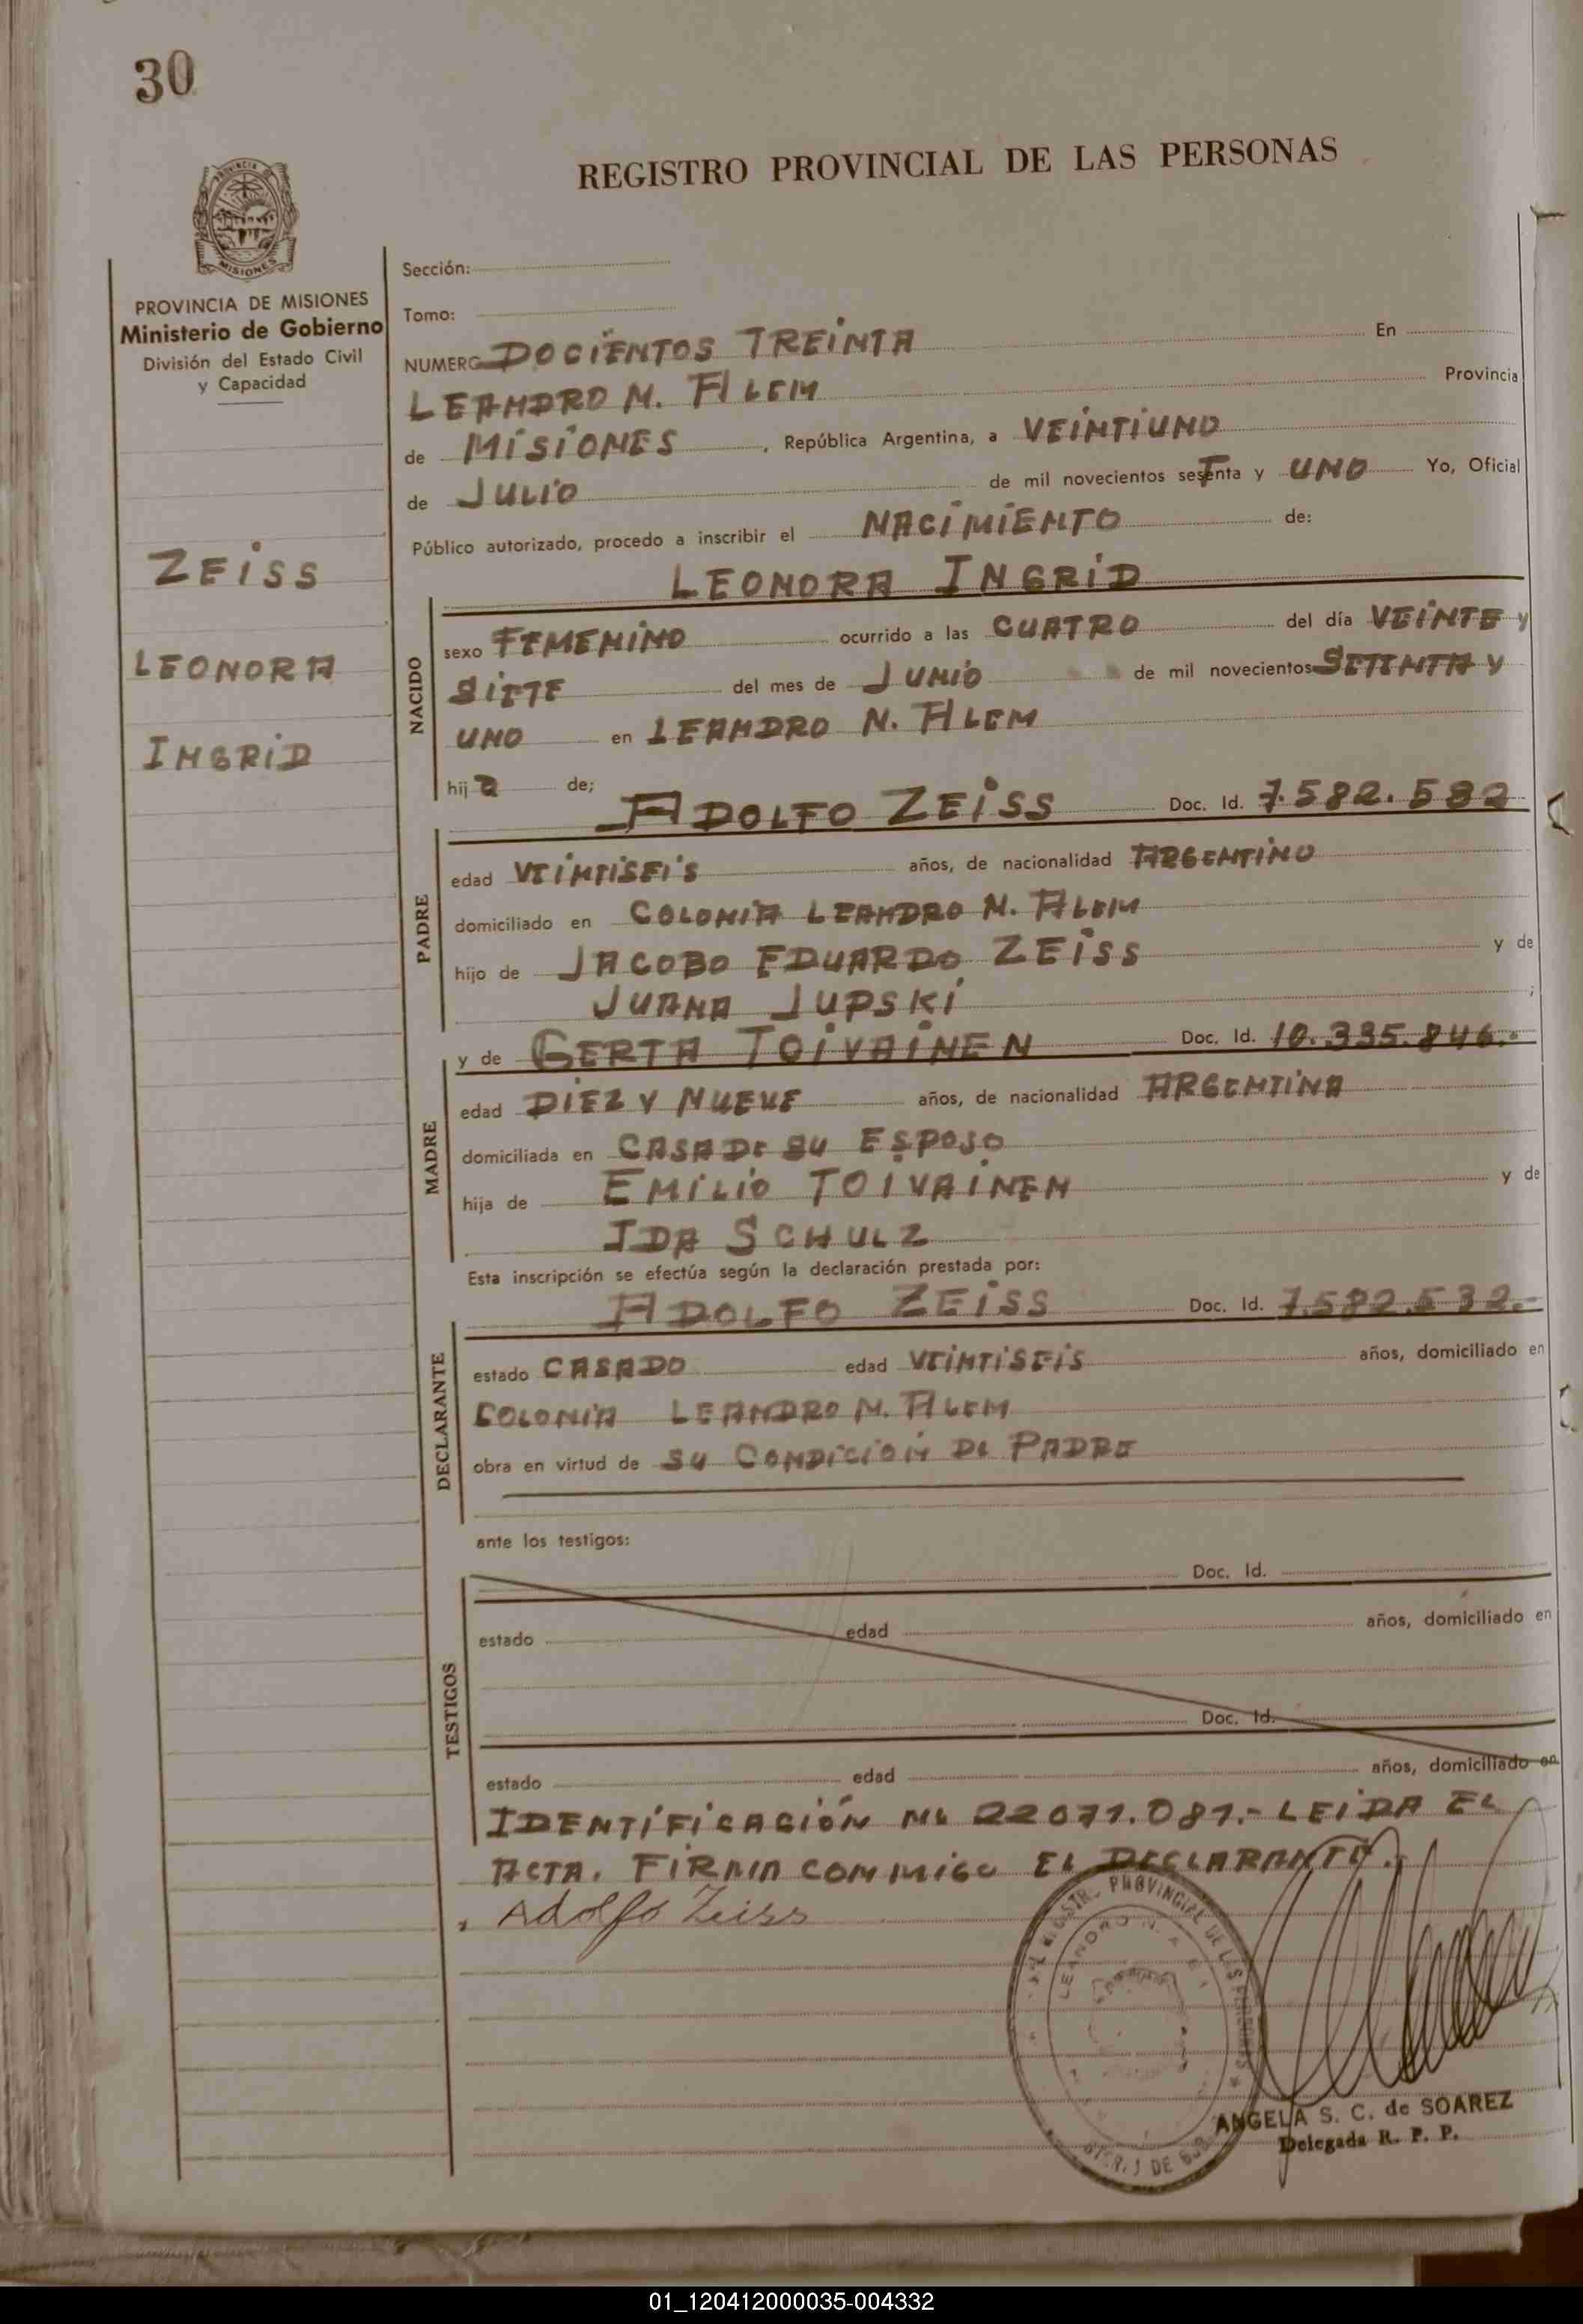 30
REGISTRO PROVINCIAL DE LAS PERSONAS
PROVINCIA
MISIONES
PROVINCIA DE MISIONES
Ministerio de Gobierno
División del Estado Civil
y Capacidad
ZEISS
LEONORA
INGRID
Sección:
Tomo:
NUMERO DOCIENTOS TREINTA En
LEANDRO N. ALEM Provincia
de MISIONES , República Argentina, a VEINTIUNO
de JULIO de mil novecientos setenta y UNO Yo, Oficial
Público autorizado, procedo a inscribir el NACIMIENTO de:
LEONORA INGRID
NACIDO
sexo FEMENINO ocurrido a las CUATRO del día VEINTE y
SIETE del mes de JUNIO de mil novecientos SETENTA Y
UNO en LEANDRO N. ALEM
hija de;
ADOLFO ZEISS Doc. Id. 7.582.532
PADRE
edad VEINTISEIS años, de nacionalidad ARGENTINO
domiciliado en COLONIA LEANDRO N. ALEM
hijo de JACOBO EDUARDO ZEISS y de
JUANA JUPSKI ;
y de GERTA TOIVAINEN Doc. Id. 10.335.846.-
MADRE
edad DIEZ Y NUEVE años, de nacionalidad ARGENTINA
domiciliada en CASA DE SU ESPOSO
hija de EMILIO TOIVAINEN y de
IDA SCHULZ
Esta inscripción se efectúa según la declaración prestada por:
ADOLFO ZEISS Doc. Id. 7.582.532.-
DECLARANTE
estado CASADO edad VEINTISEIS años, domiciliado en
COLONIA LEANDRO N. ALEM
obra en virtud de SU CONDICIÓN DE PADRE
ante los testigos:
Doc. Id.
TESTIGOS
estado edad años, domiciliado en
Doc. Id.
estado edad años, domiciliado en
IDENTIFICACIÓN No 22071.081.- LEIDA EL
ACTA. FIRMA CONMIGO EL DECLARANTE.
Adolfo Zeiss
PROVINCIAL DE LAS PERSONAS
LEANDRO N. ALEM
ANGELA S. C. de SOAREZ
Delegada R. P. P.
01_120412000035-004332